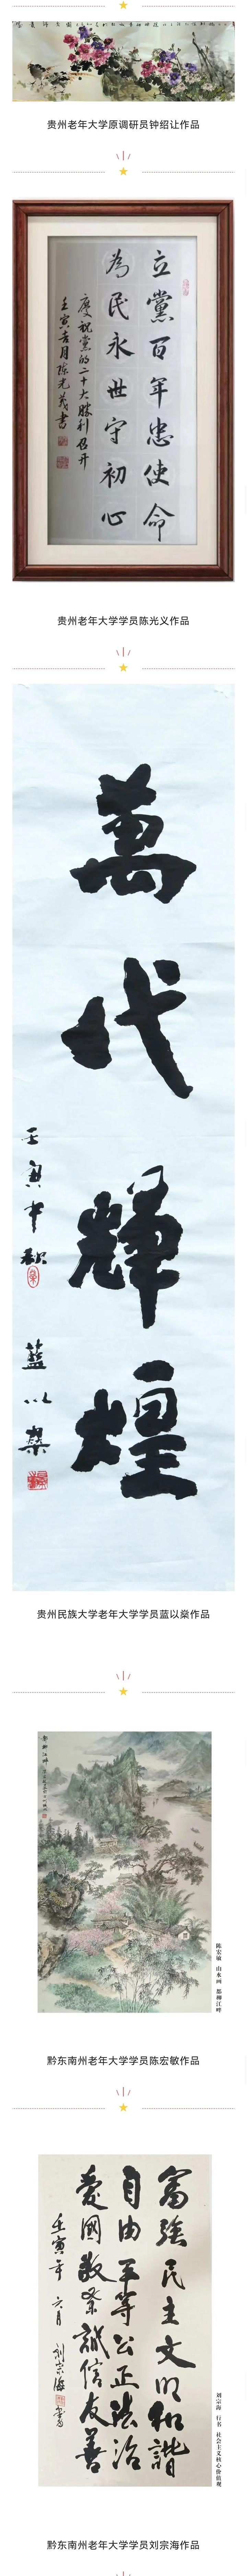 贵州老年大学原调研员钟绍让作品
立黨百年忠使命
為民永世守初心
慶祝黨的二十大勝利召开
壬寅吉月陈光義書
贵州老年大学学员陈光义作品
萬代輝煌
壬寅中秋
藍以燊
贵州民族大学老年大学学员蓝以燊作品
陈宏敏 山水画 都柳江畔
黔东南州老年大学学员陈宏敏作品
富強民主文明和諧
自由平等公正法治
愛國敬業誠信友善
壬寅年六月
刘宗海
刘宗海 行书 社会主义核心价值观
黔东南州老年大学学员刘宗海作品